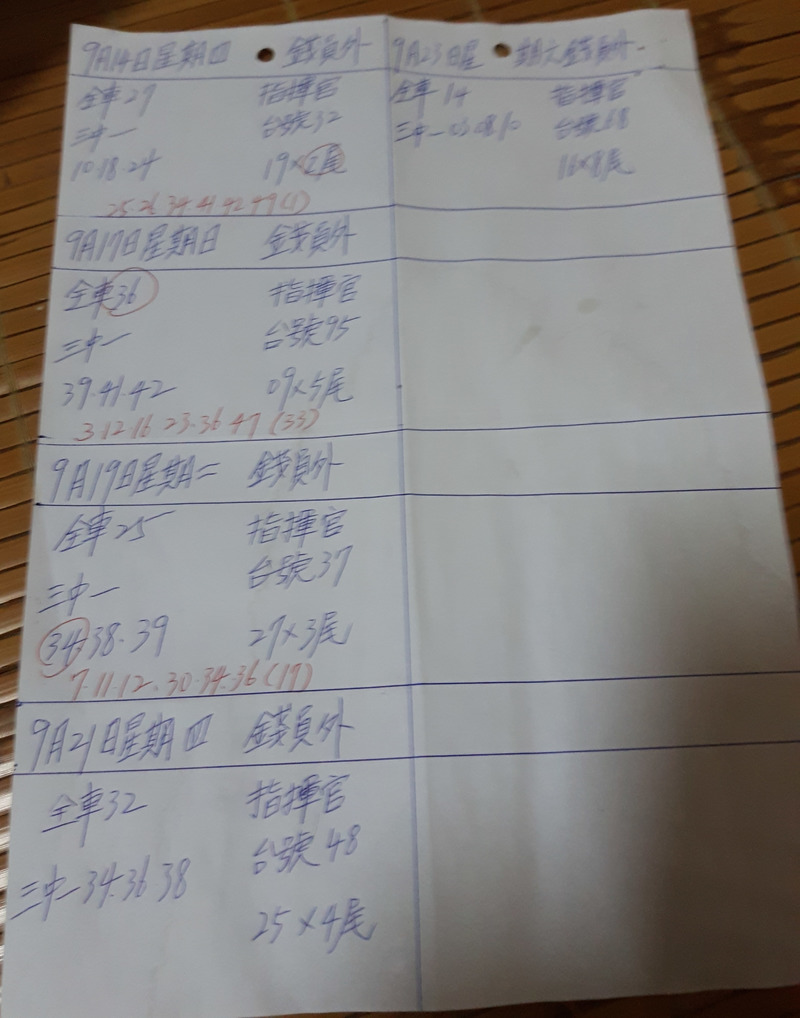 9月14日星期四 錢員外
全車27 指揮官
三中一 台號32
10.18.24 19×2尾
25.26.34.41.42.49(1)
9月17日星期日 錢員外
全車36 指揮官
三中一 台號95
39.41.42 09×5尾
3.12.16.23.36.47(33)
9月19日星期二 錢員外
全車25 指揮官
三中一 台號37
34.38.39 27×3尾
7.11.12.30.34.36(19)
9月21日星期四 錢員外
全車32 指揮官
台號48
三中一34.36.38
25×4尾
9月23日星期六錢員外
全車14 指揮官
三中一03.08.10 台號68
16×8尾